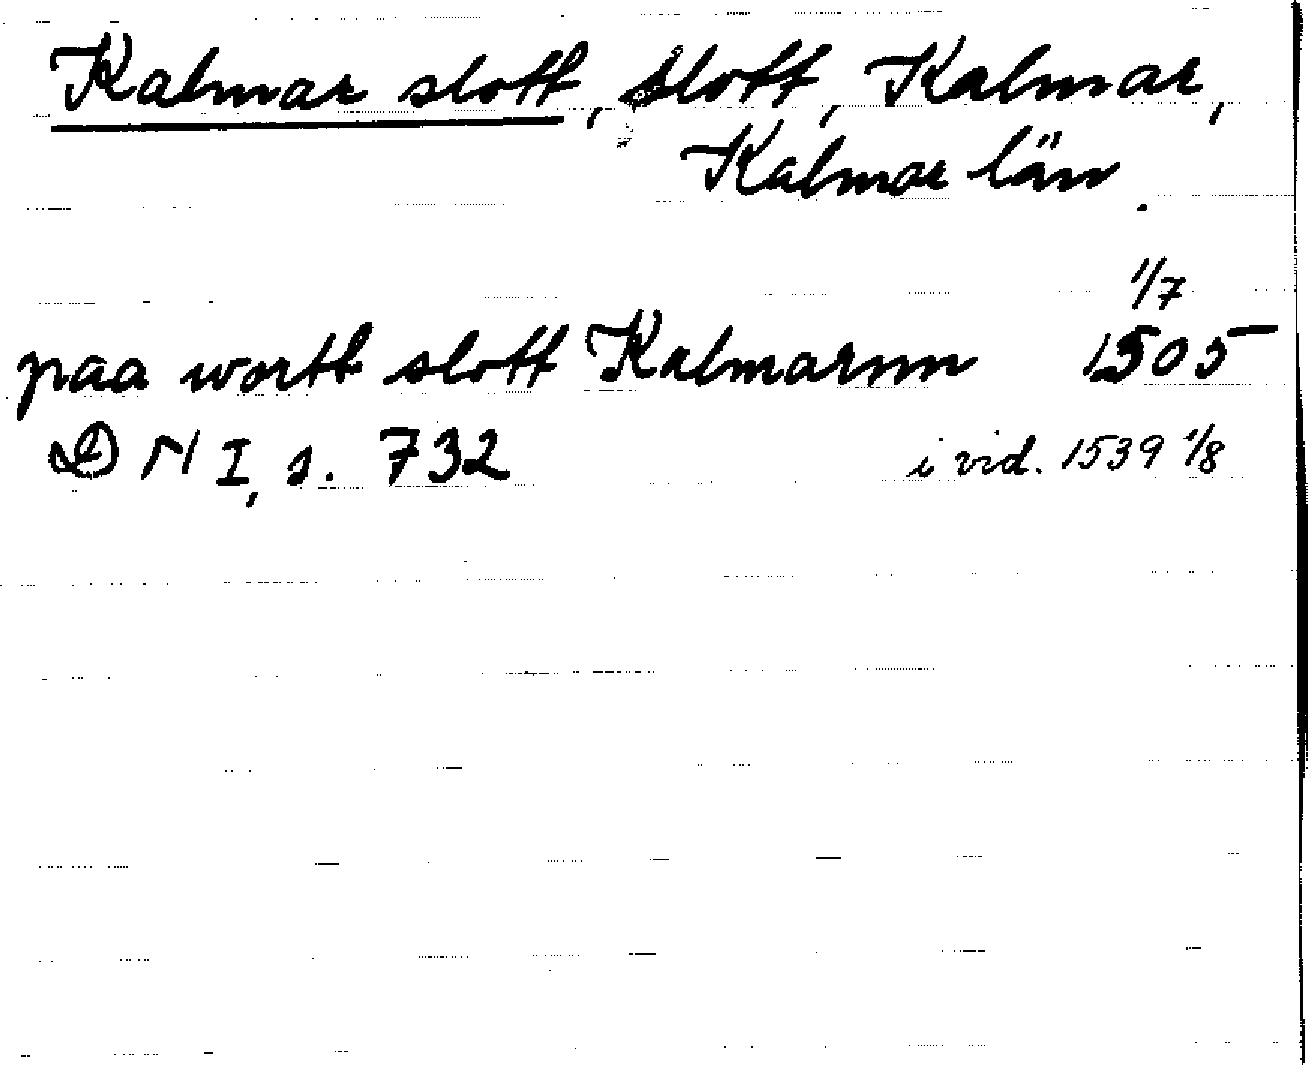 Kalmar slott, slott, Kalmar,
Kalmar län.
1/7
paa wortt slott Kalmarnn 1505
DN I, s. 732 i vid. 1539 1/8